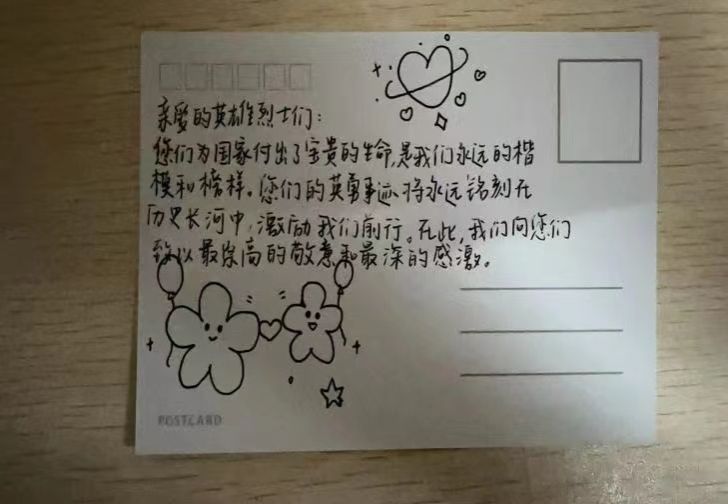 亲爱的英雄烈士们：
您们为国家付出了宝贵的生命,是我们永远的楷
模和榜样。您们的英勇事迹将永远铭刻在
历史长河中,激励我们前行。在此,我们向您们
致以最崇高的敬意和最深的感激。
POSTCARD